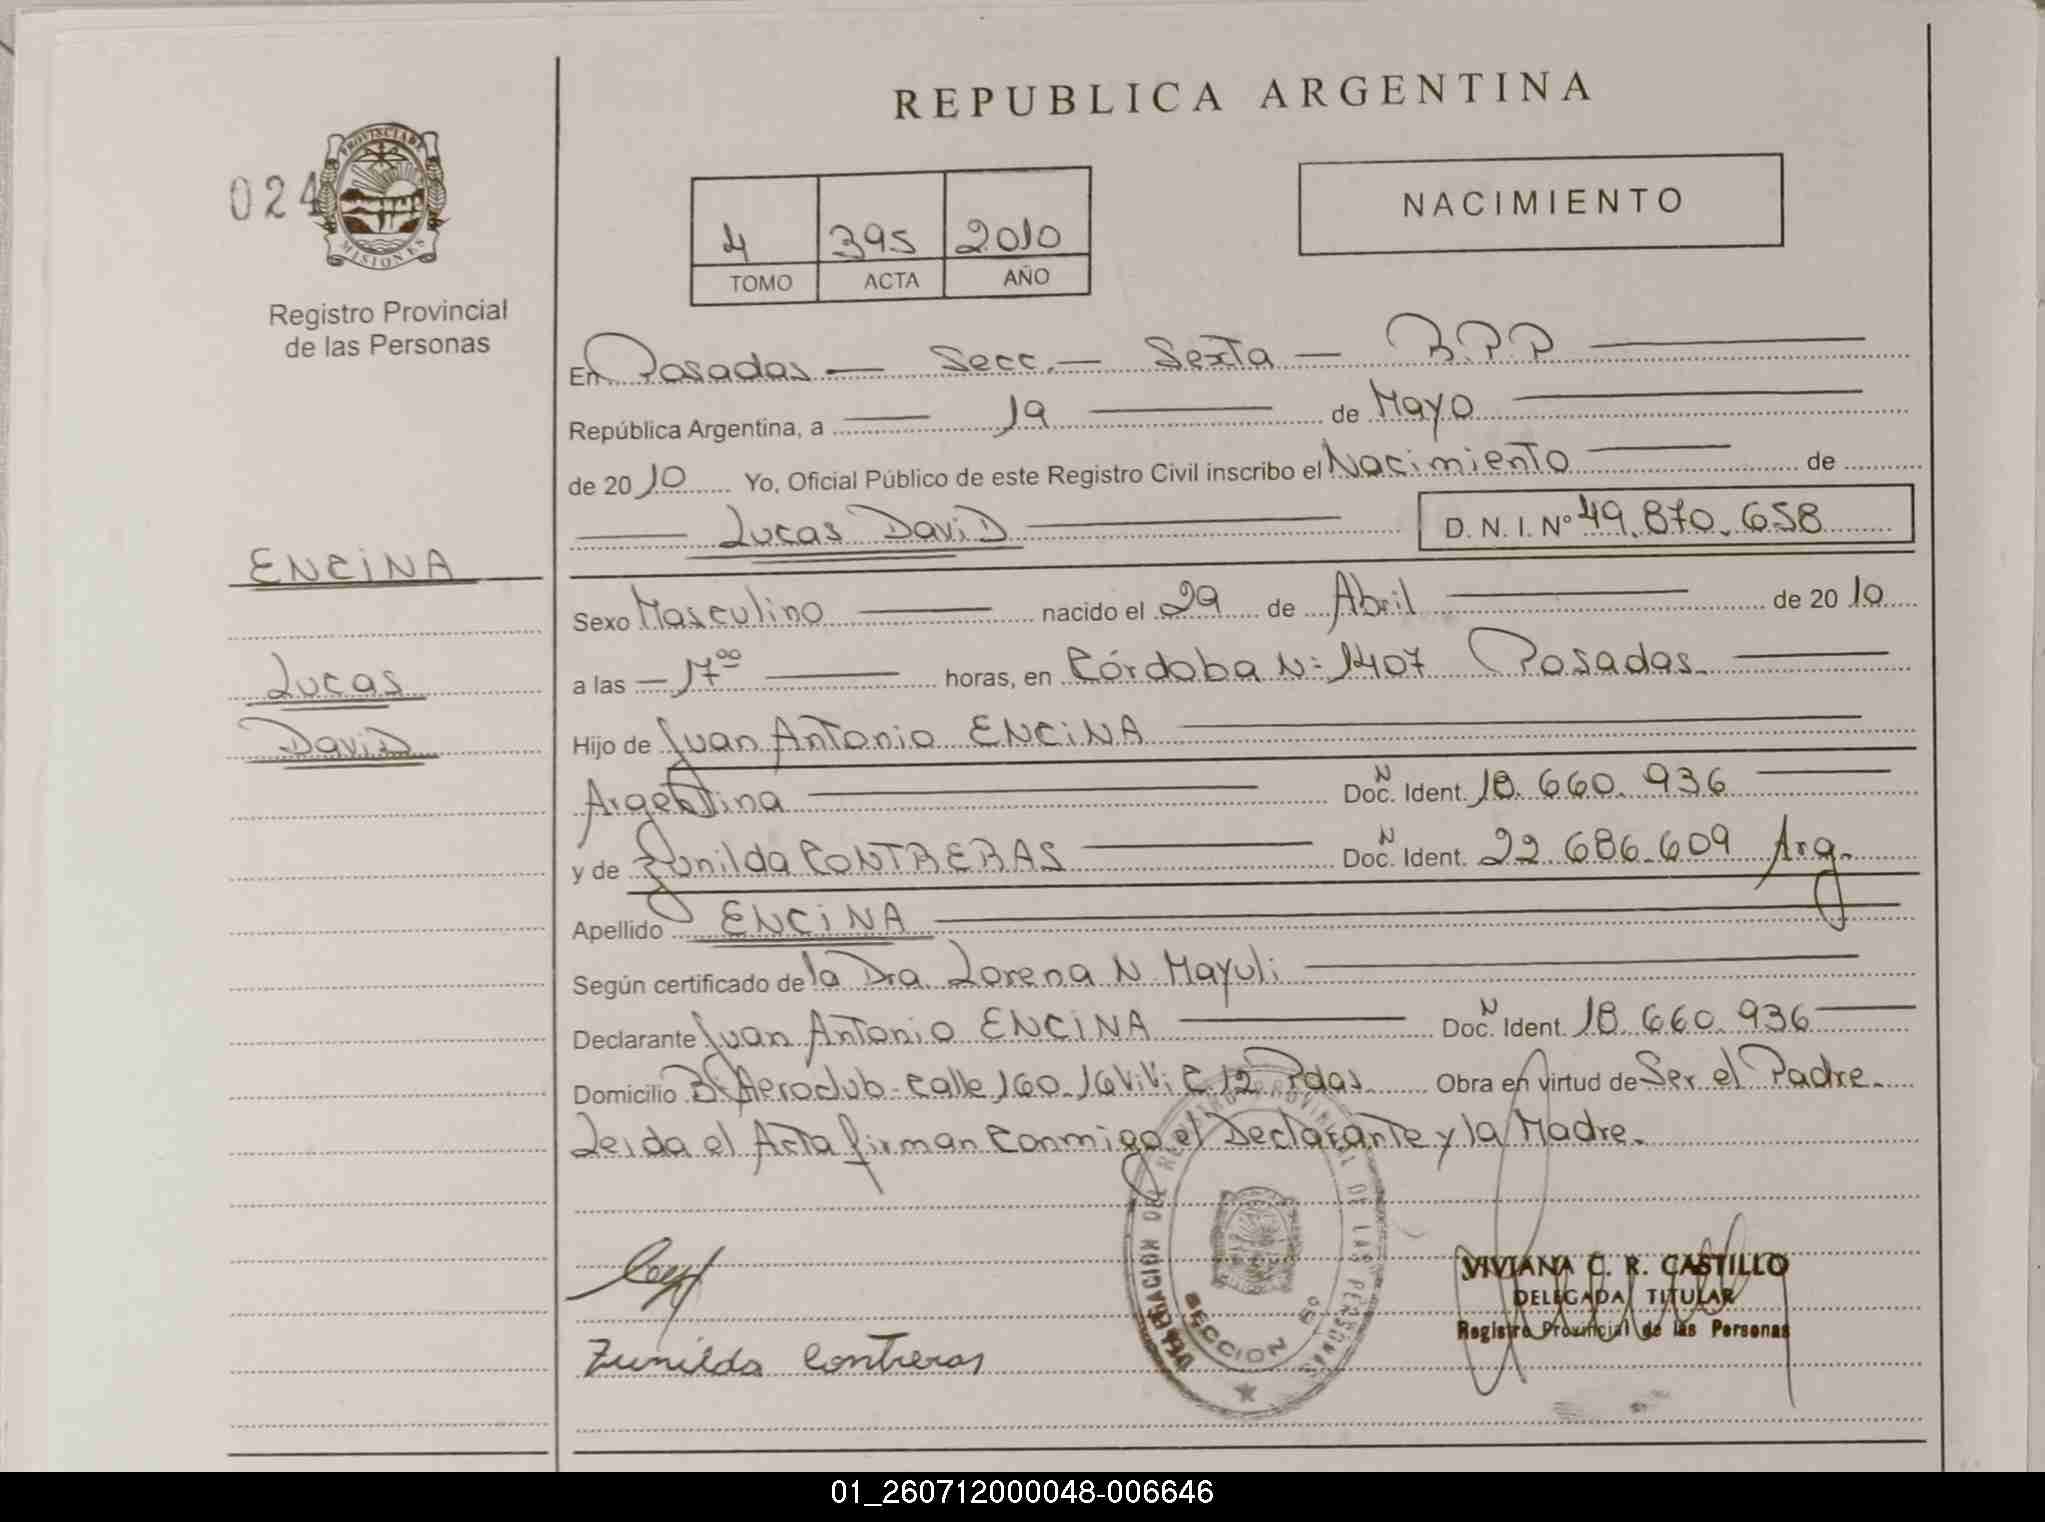 REPUBLICA ARGENTINA
024
PROVINCIA DE
MISIONES
Registro Provincial
de las Personas
4 395 2010
TOMO ACTA AÑO
NACIMIENTO
En Posadas — Secc. — Sexta — B.P.P
República Argentina, a — 19 — de Mayo
de 2010 Yo, Oficial Público de este Registro Civil inscribo el Nacimiento — de
Lucas DaviD — D. N. I. Nº 49.870.658
ENCiNA
Lucas
DaviD
Sexo Masculino — nacido el 29 de Abril — de 2010
a las — 17⁰⁰ — horas, en Córdoba Nº 1407 Posadas. —
Hijo de Juan Antonio ENCiNA —
Argentina — Doc. N Ident. 18.660.936 —
y de Zunilda CONTRERAS — Doc. N Ident. 22.686.609 Arg.
Apellido ENCiNA —
Según certificado de la Dra. Lorena N Mayuli —
Declarante Juan Antonio ENCiNA — Doc. N Ident. 18.660.936 —
Domicilio Bº Aeroclub-Calle 160. 16 ViVi C. 12 Pdas. Obra en virtud de Ser el Padre.
Leida el Acta firman Conmigo el Declarante y la Madre.
Zunilda Contreras
REGISTRO PROVINCIAL DE LAS PERSONAS
SECCION
VIVIANA C. R. CASTILLO
DELEGADA TITULAR
Registro Provincial de las Personas
01_260712000048-006646